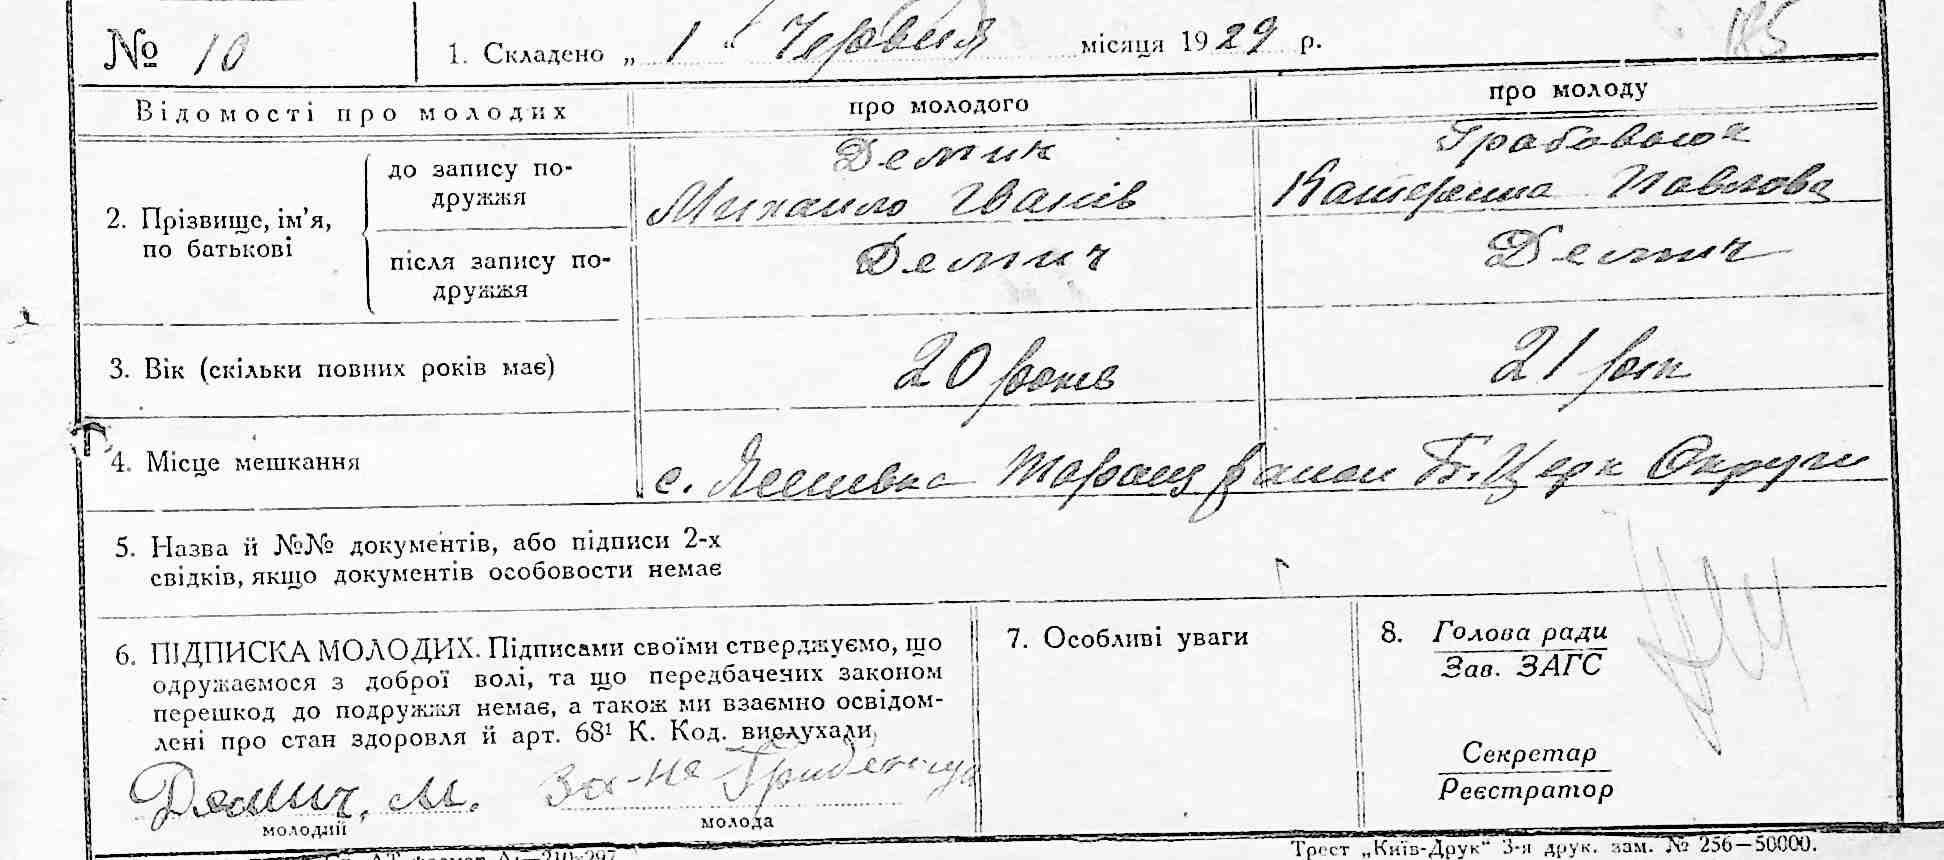 № 10
1. Складено „ 1 “ Червня місяця 1929 р.
185
Відомості про молодих
про молодого
про молоду
2. Прізвище, ім’я,
по батькові
до запису по-
дружжя
Демич
Михайло Іванів
Грабовська
Катерина Павлова
після запису по-
дружжя
Демич
Демич
3. Вік (скільки повних років має)
20 років
21 рік
4. Місце мешкання
с. Таращ район Б. Церк Округи
5. Назва й №№ документів, або підписи 2-х
свідків, якщо документів особовости немає
6. ПІДПИСКА МОЛОДИХ. Підписами своїми стверджуємо, що
одружаємося з доброї волі, та що передбачених законом
перешкод до подружжя немає, а також ми взаємно освідом-
лені про стан здоровля й арт. 68¹ К. Код. вислухали,
Демич, М.
За-не
молодий
молода
7. Особливі уваги
8. Голова ради
Зав. ЗАГС
Секретар
Реєстратор
Трест „Київ-Друк“ 3-я друк. зам. № 256—50000.